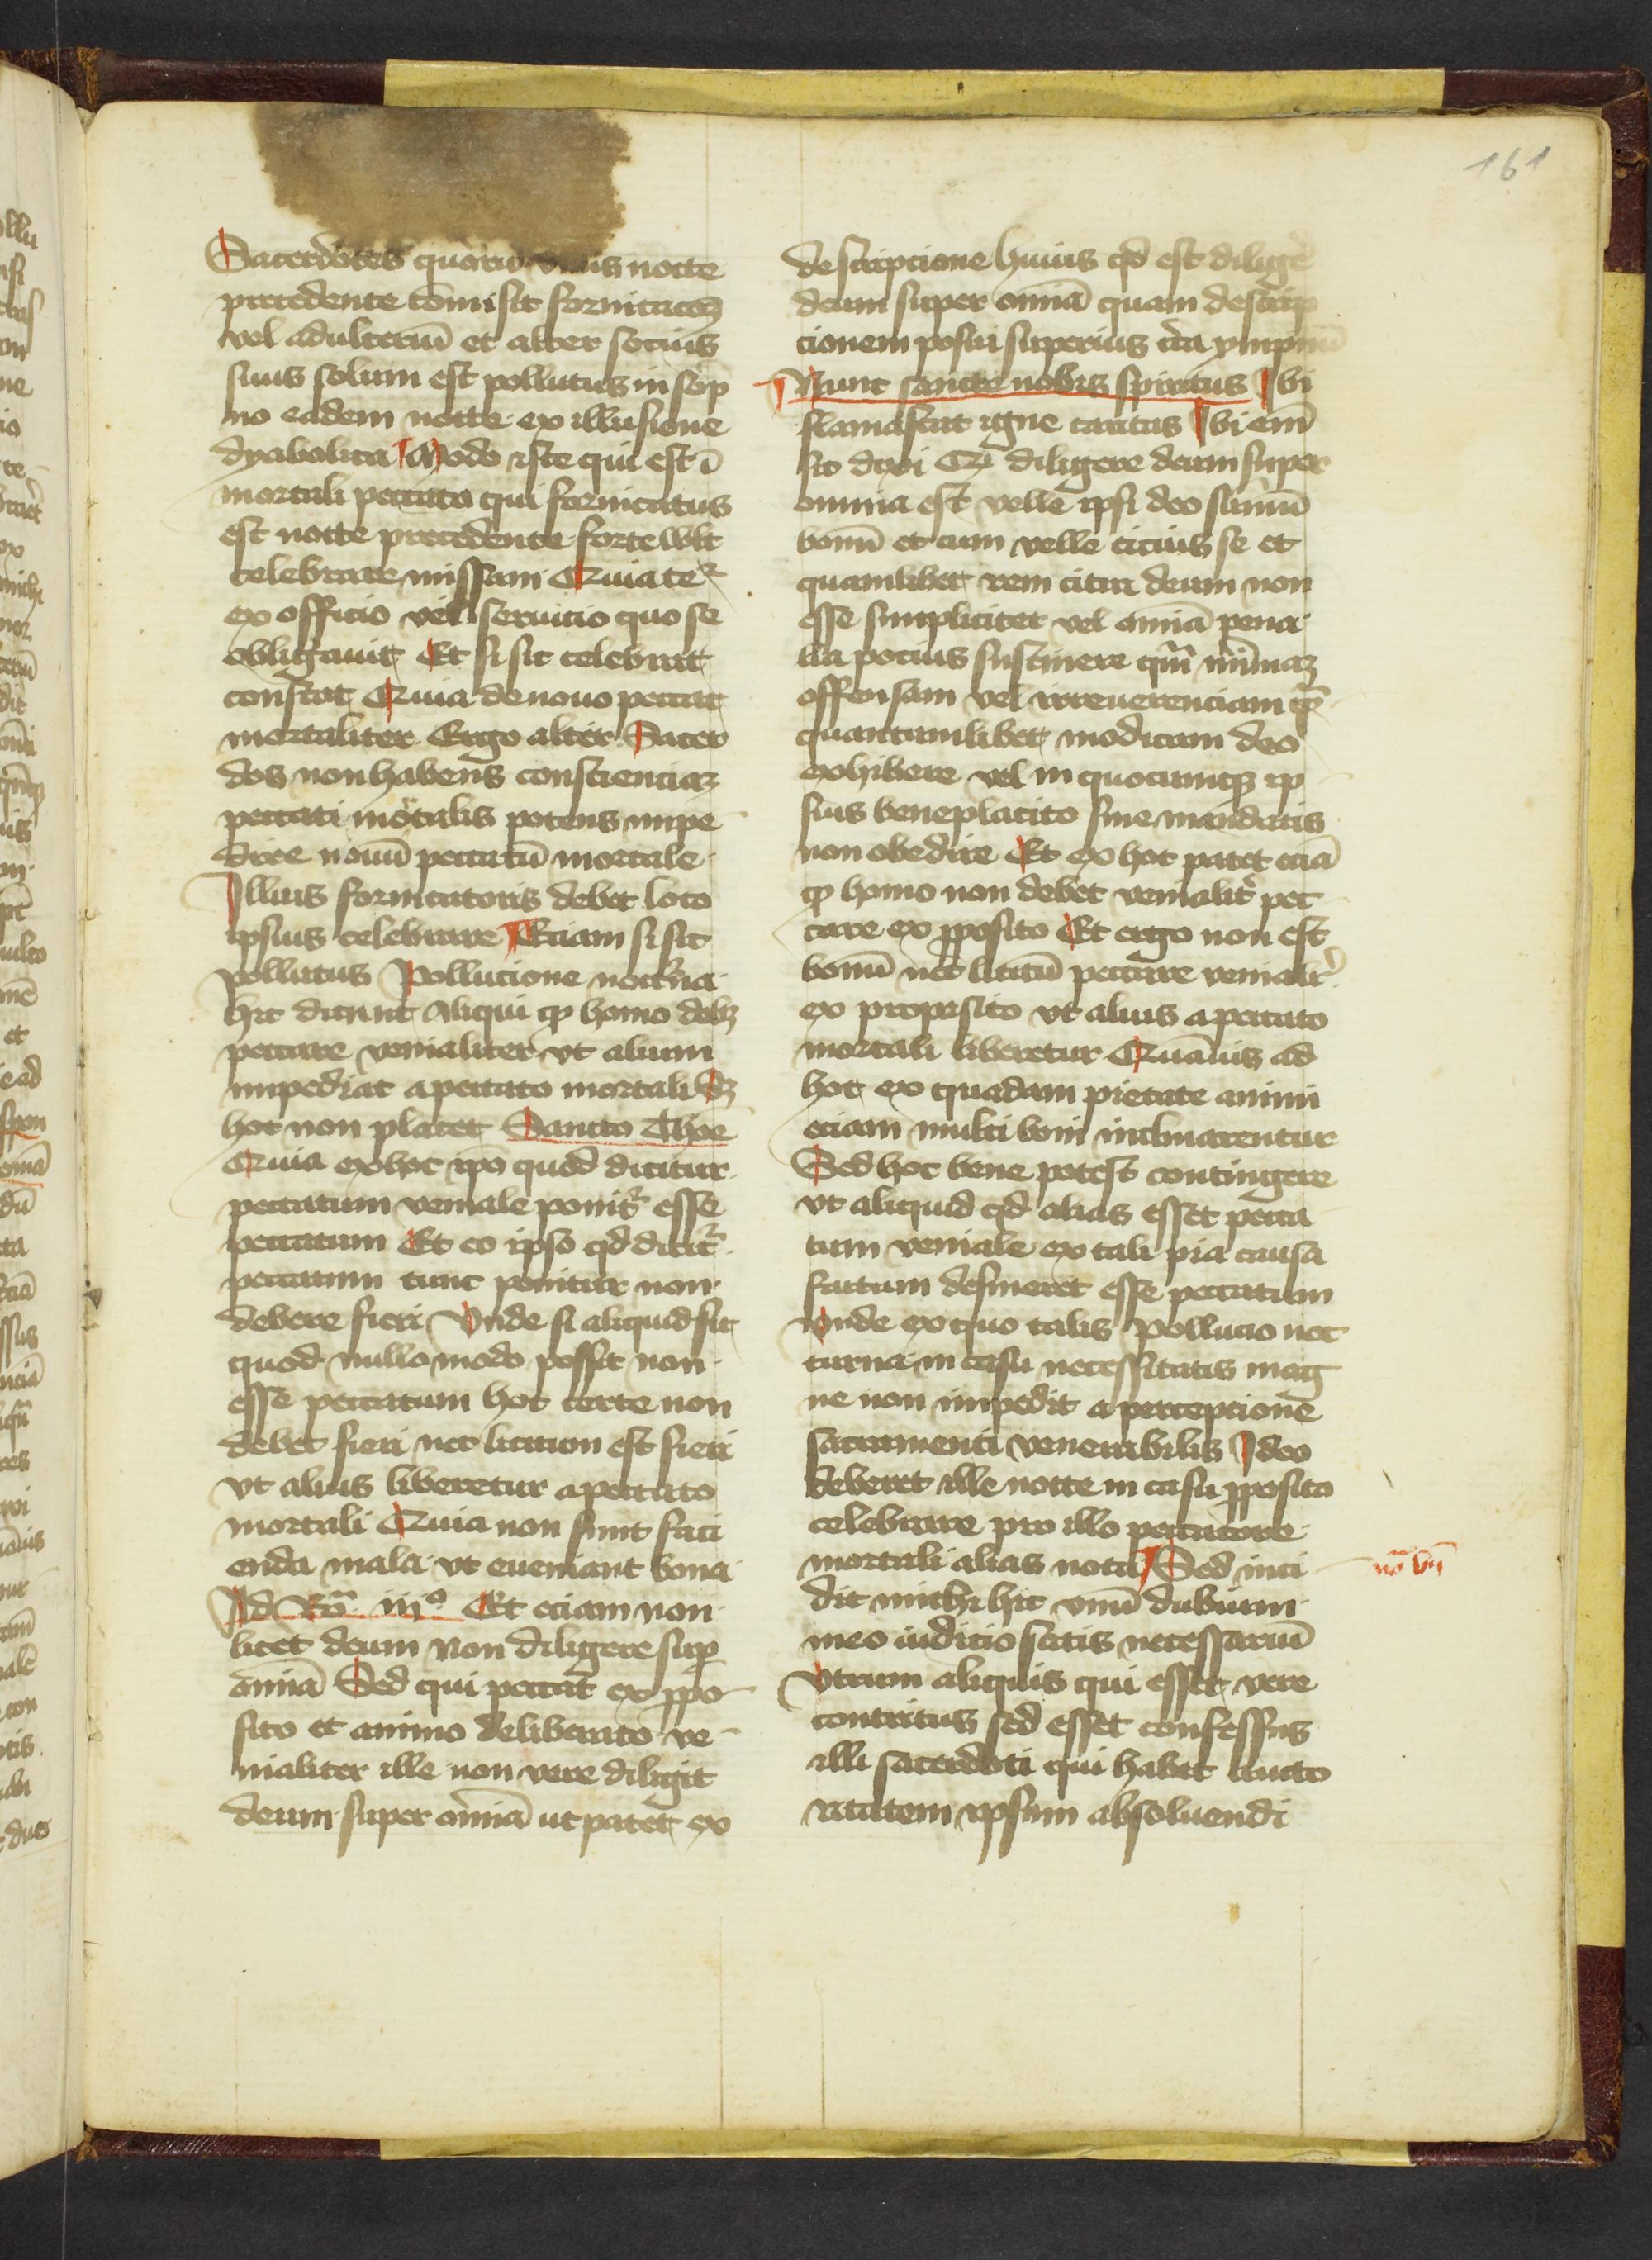 161
Sacerdotes quorum vnus nocte
precedente comisit fornicacōȝ
vel adulteriū et alter socius
suus solum est pollutus in sop
no eadem nocte ex illusione
dyabolica Modo iste qui est ī
mortali peccato qui fornicatus
est nocte precedente forte wlt
celebrare missam Quia te
ex officio vel seruicio quo se
obligauit Et si sic celebrat
constat Quia de nouo peccat
mortaliter Ergo alter Sacer
dos non habens conscienciaȝ
peccati mortalis potens impe
dire nouū peccatū mortale
Illius fornicatoris debet loco
ipsius celebrare Eciam si sit
pollutus Pollucione nocturna
hic dicunt Aliqui ꝙ homo debȝ
peccare venialiter vt alium
impediat a peccato mortali Sȝ
hoc non placet Sancto Thoe
Quia ex hoc ipo quod dicitur
peccatum veniale ponitr̄ esse
peccatum Et eo ipso qd dicitr̄
peccatum tunc ponitur non
debere fieri Vnde si aliquid sit
quod nullo modo possit non
esse peccatum hoc certe non
debet fieri nec licitum est fieri
vt alius liberetur a peccato
mortali Quia non sunt faci
enda mala vt eueniant bona
Ad Ro iijº Et eciam non
licet deum Non diligere suꝑ
omīa Sed qui peccat ex ꝓpo
sito et animo deliberato ve
nialiter ille non vere diligit
deum super omīa ut patet ex
descripcione huius qd est diligē
deum super omīa quam descrip
cionem posui superius circa ympnū
Nunc sancte nobis spiritus Ibi
flamascat igne caritas Ibi em̄
sic dixi Qꝫ diligere deum super
omnia est velle ipsi deo sūmū
bonū et cum velle cicius se et
quamlibet rem citra deum non
esse simpliciter vel omīa pena
lia pocius sustinere qm̄ mīmaȝ
offensam vel irreuerenciam
quantumlibet modicam deo
exhibere vel in quocumqȝ ip
sius beneplacito siue mandatis
non obedire Et ex hoc patet eciā
ꝙ homo non debet venialit̄ pec
care ex ꝓposito Et ergo non est
bonū nec licitū peccare venialr̄
ex proposito vt alius a peccato
mortali liberetur Quāuis ad
hoc ex quadam pietate animi
eciam multi boni inclinarentur
Sed hoc bene potest contingere
vt aliquid qd alias esset pecca
tum veniale ex tali pia causa
factum desineret esse peccatum
Vnde ex quo talis pollucio noc
turna in casu necessitatis mag
ne non impedit a percepcione
sacramenti venerabilis Ideo
deberet ille nocte in casu ꝓposito
celebrare pro illo peccatore
mortali alias nota Sed inci
dit michi hic vnū dubium
meo iudicio satis necessariū
Vtrum aliquis qui esset vere
contritus sed esset confessus
illi sacerdoti qui habet aucto
ritatem ipsum absoluendi